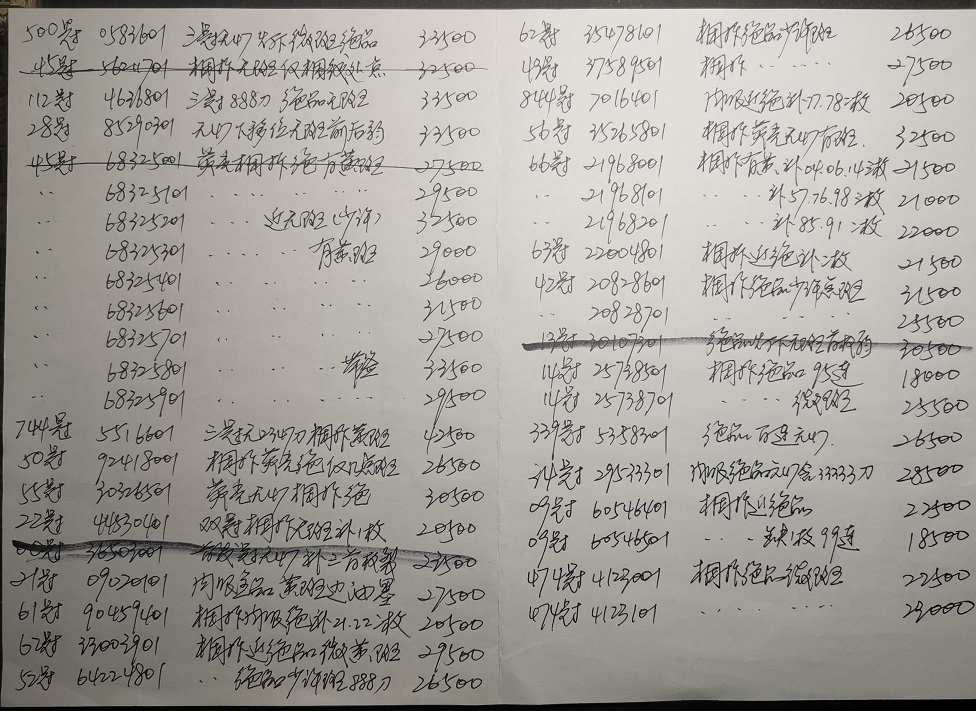 500冠 0583601 三冠无47 尖作微斑绝品 33500
45冠 5624701 相拆无斑仅相纹处点 32500
112冠 4636801 三冠888刀 绝品无斑 33500
28冠 85290301 无47 下移位无斑前后韵 33500
45冠 68325001 荧壳相拆绝有黄斑 27500
‥ 68325101 ‥‥‥ 29500
‥ 68325201 ‥‥ 近无斑(少许) 32500
‥ 68325301 ‥‥‥ 有黄斑 29000
‥ 68325401 ‥‥‥ 26000
‥ 68325601 ‥‥‥ 31500
‥ 68325701 ‥‥‥ 27500
‥ 68325801 ‥‥‥ 33500
‥ 68325901 ‥‥‥ 29500
744冠 5516601 三冠无2347刀相拆黄斑 42500
50冠 92418001 相拆荧壳绝仅几点斑 26500
55冠 30326501 荧壳无47相拆绝 30500
22冠 44530401 双冠相拆无斑补1枚 20500
00冠 36503001 无47补三首枚裂 23500
21冠 09020101 内吸全品黄斑边油墨 27500
61冠 90459401 相拆内吸绝补21.22二枚 20500
62冠 33003901 相拆近绝品微黄斑 29500
52冠 64224801 ‥ 绝品少许斑888刀 26500
62冠 35478101 相拆绝品少许斑 26500
49冠 37589501 相拆‥‥‥ 27500
844冠 7016401 内吸近绝补77.78二枚 20500
56冠 35265801 相拆荧壳无47有斑. 32500
66冠 21968001 相拆有黄.补04.06.14三枚 21500
‥ 21968101 补57.76.98三枚 21000
‥ 21968201 ‥‥ 补85.91二枚 22000
63冠 22004801 相拆近绝补二枚 21500
42冠 20828601 相拆绝品少许点斑 31500
20828701 ‥‥‥ 25500
13冠 30107301 绝品尖作无斑首枚韵 30500
14冠 25738501 相拆绝品95连 18000
14冠 25738701 ‥‥ 微斑 25500
339冠 5358301 绝品百连无47. 26500
34冠 29533301 内吸绝品无47含33333刀 28500
09冠 60546401 相拆近绝品 22500
09冠 60546501 ‥‥ 缺1枚99连 18500
474冠 4123001 相拆绝品微斑 22500
474冠 4123101 ‥‥‥ 23000